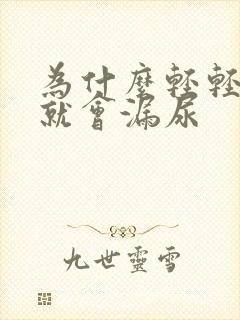 為什麼輕輕
就會漏尿
九世靈雪